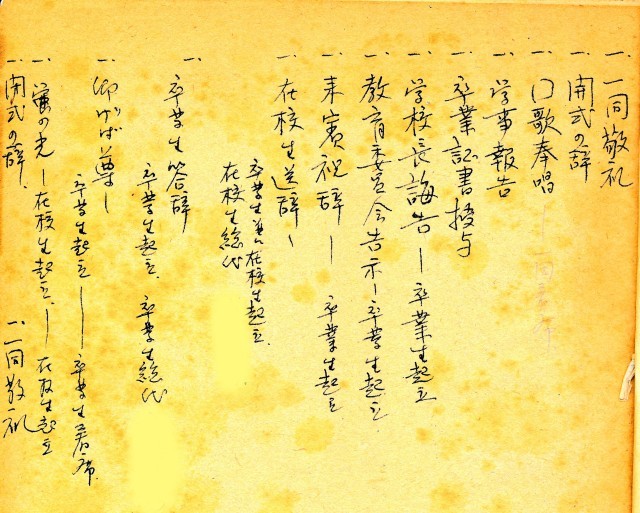 一、一同敬礼
一、開式の辞
一、口歌奉唱
一、学事報告
卒業証書授与
一、学校長誨告―卒業生起立
一、教育委員会告示―卒業生起立
一、来賓祝辞― 卒業生起立
一、在校生送辞―
卒業生並ニ在校生起立.
在校生総代
一、卒業生答辞
卒業生起立. 卒業生総代
一、仰げば尊し
卒業生起立――卒業生着席.
一、蛍の光―在校生起立.―在校生起立
一、閉式の辞. 一、一同敬礼